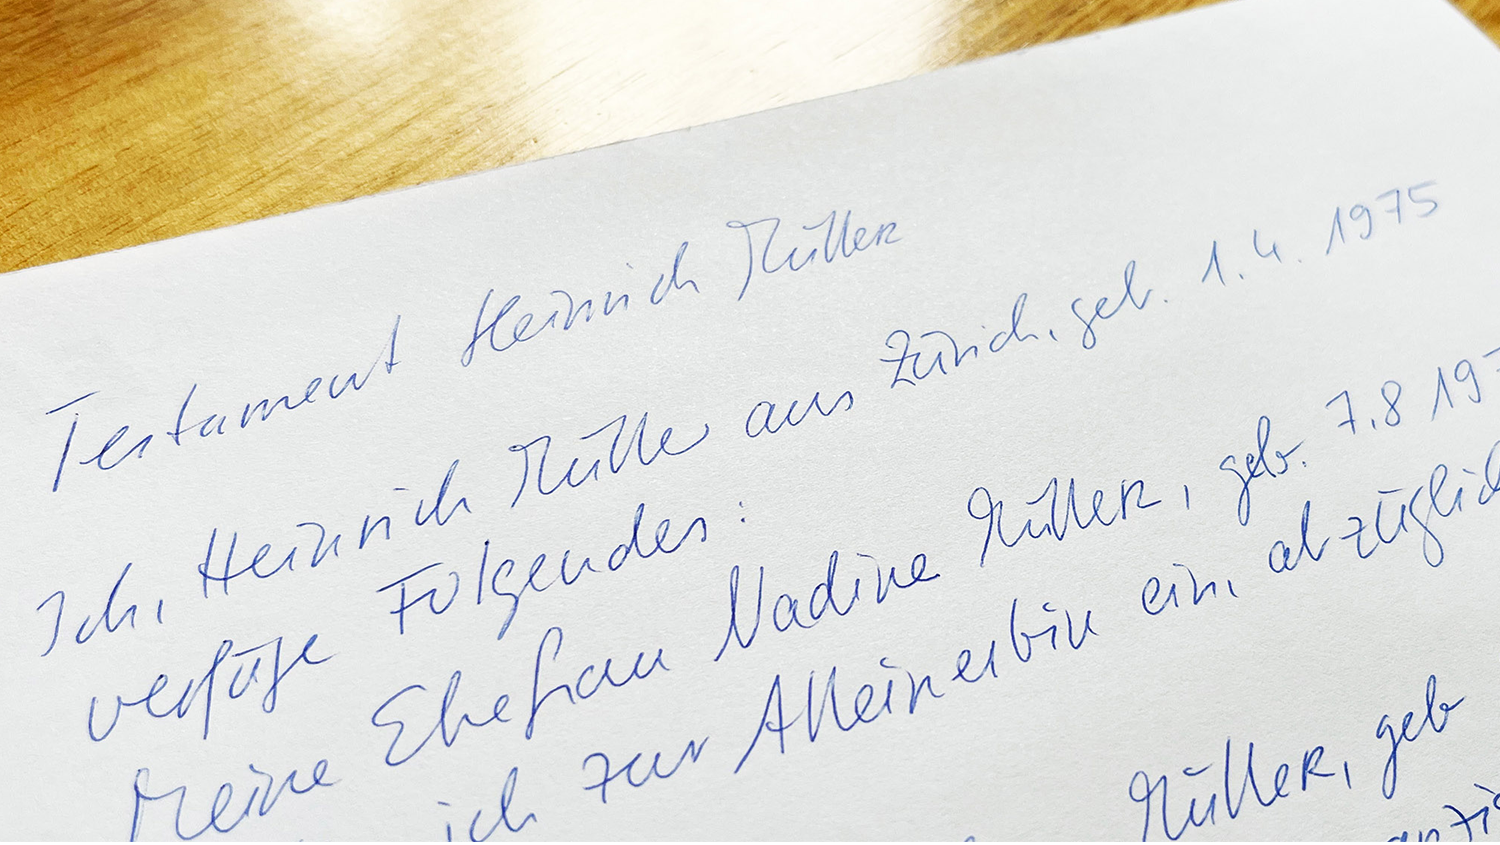 Testament Heinrich Müller
Ich, Heinrich Müller aus Zürich, geb. 1.4.1975
verfüge Folgendes:
Meine Ehefrau Nadine Müller, geb. 7.8 197
ich zur Alleinerbin ein, abzüglich
Müller, geb